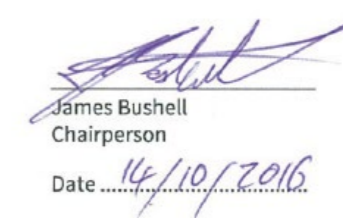 James Bushell
Chairperson
Date 14/10/2016